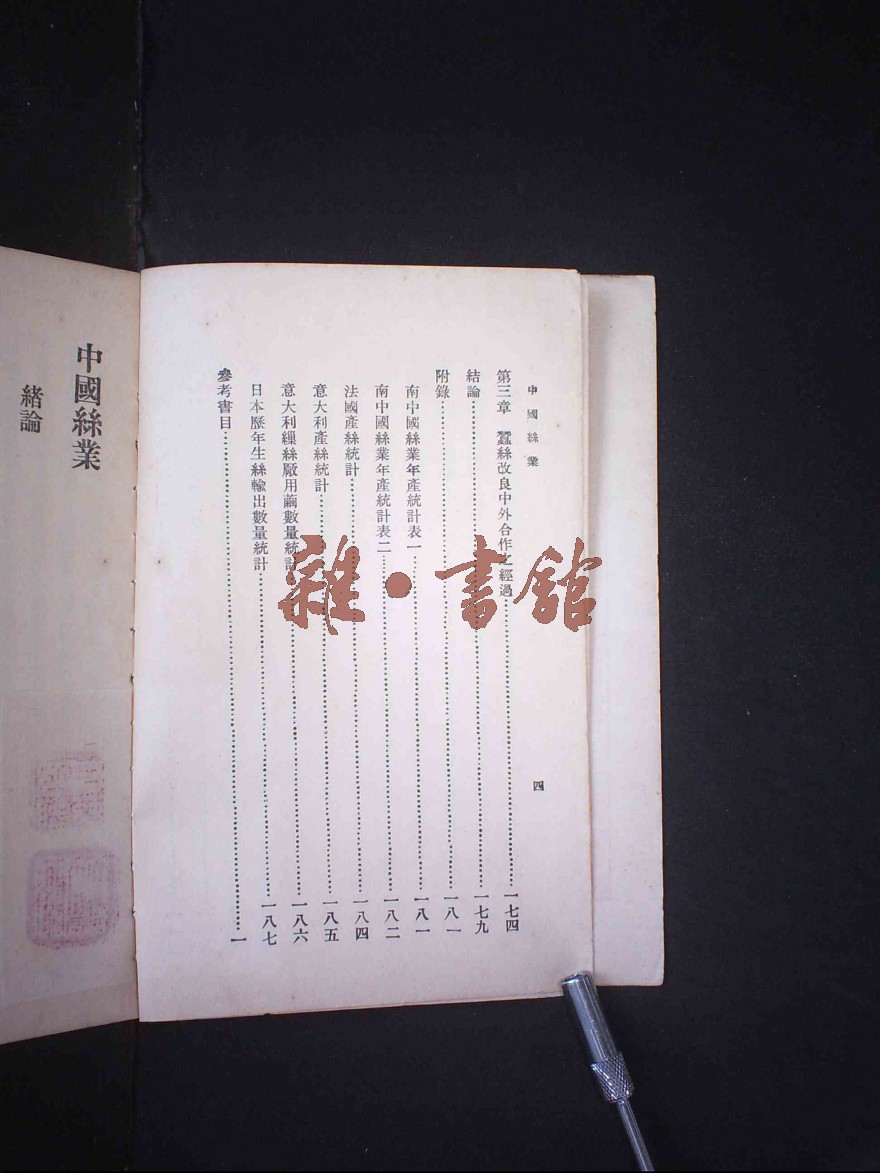 中國絲業
四
第三章 蠶絲改良中外合作之經過……一七四
結論……一七九
附錄……一八一
南中國絲業年產統計表一……一八一
南中國絲業年產統計表二……一八二
法國產絲統計……一八四
意大利產絲統計……一八五
意大利繅絲廠用繭數量統計……一八六
日本歷年生絲輸出數量統計……一八七
參考書目……一
中國絲業
緒論
雜·書館